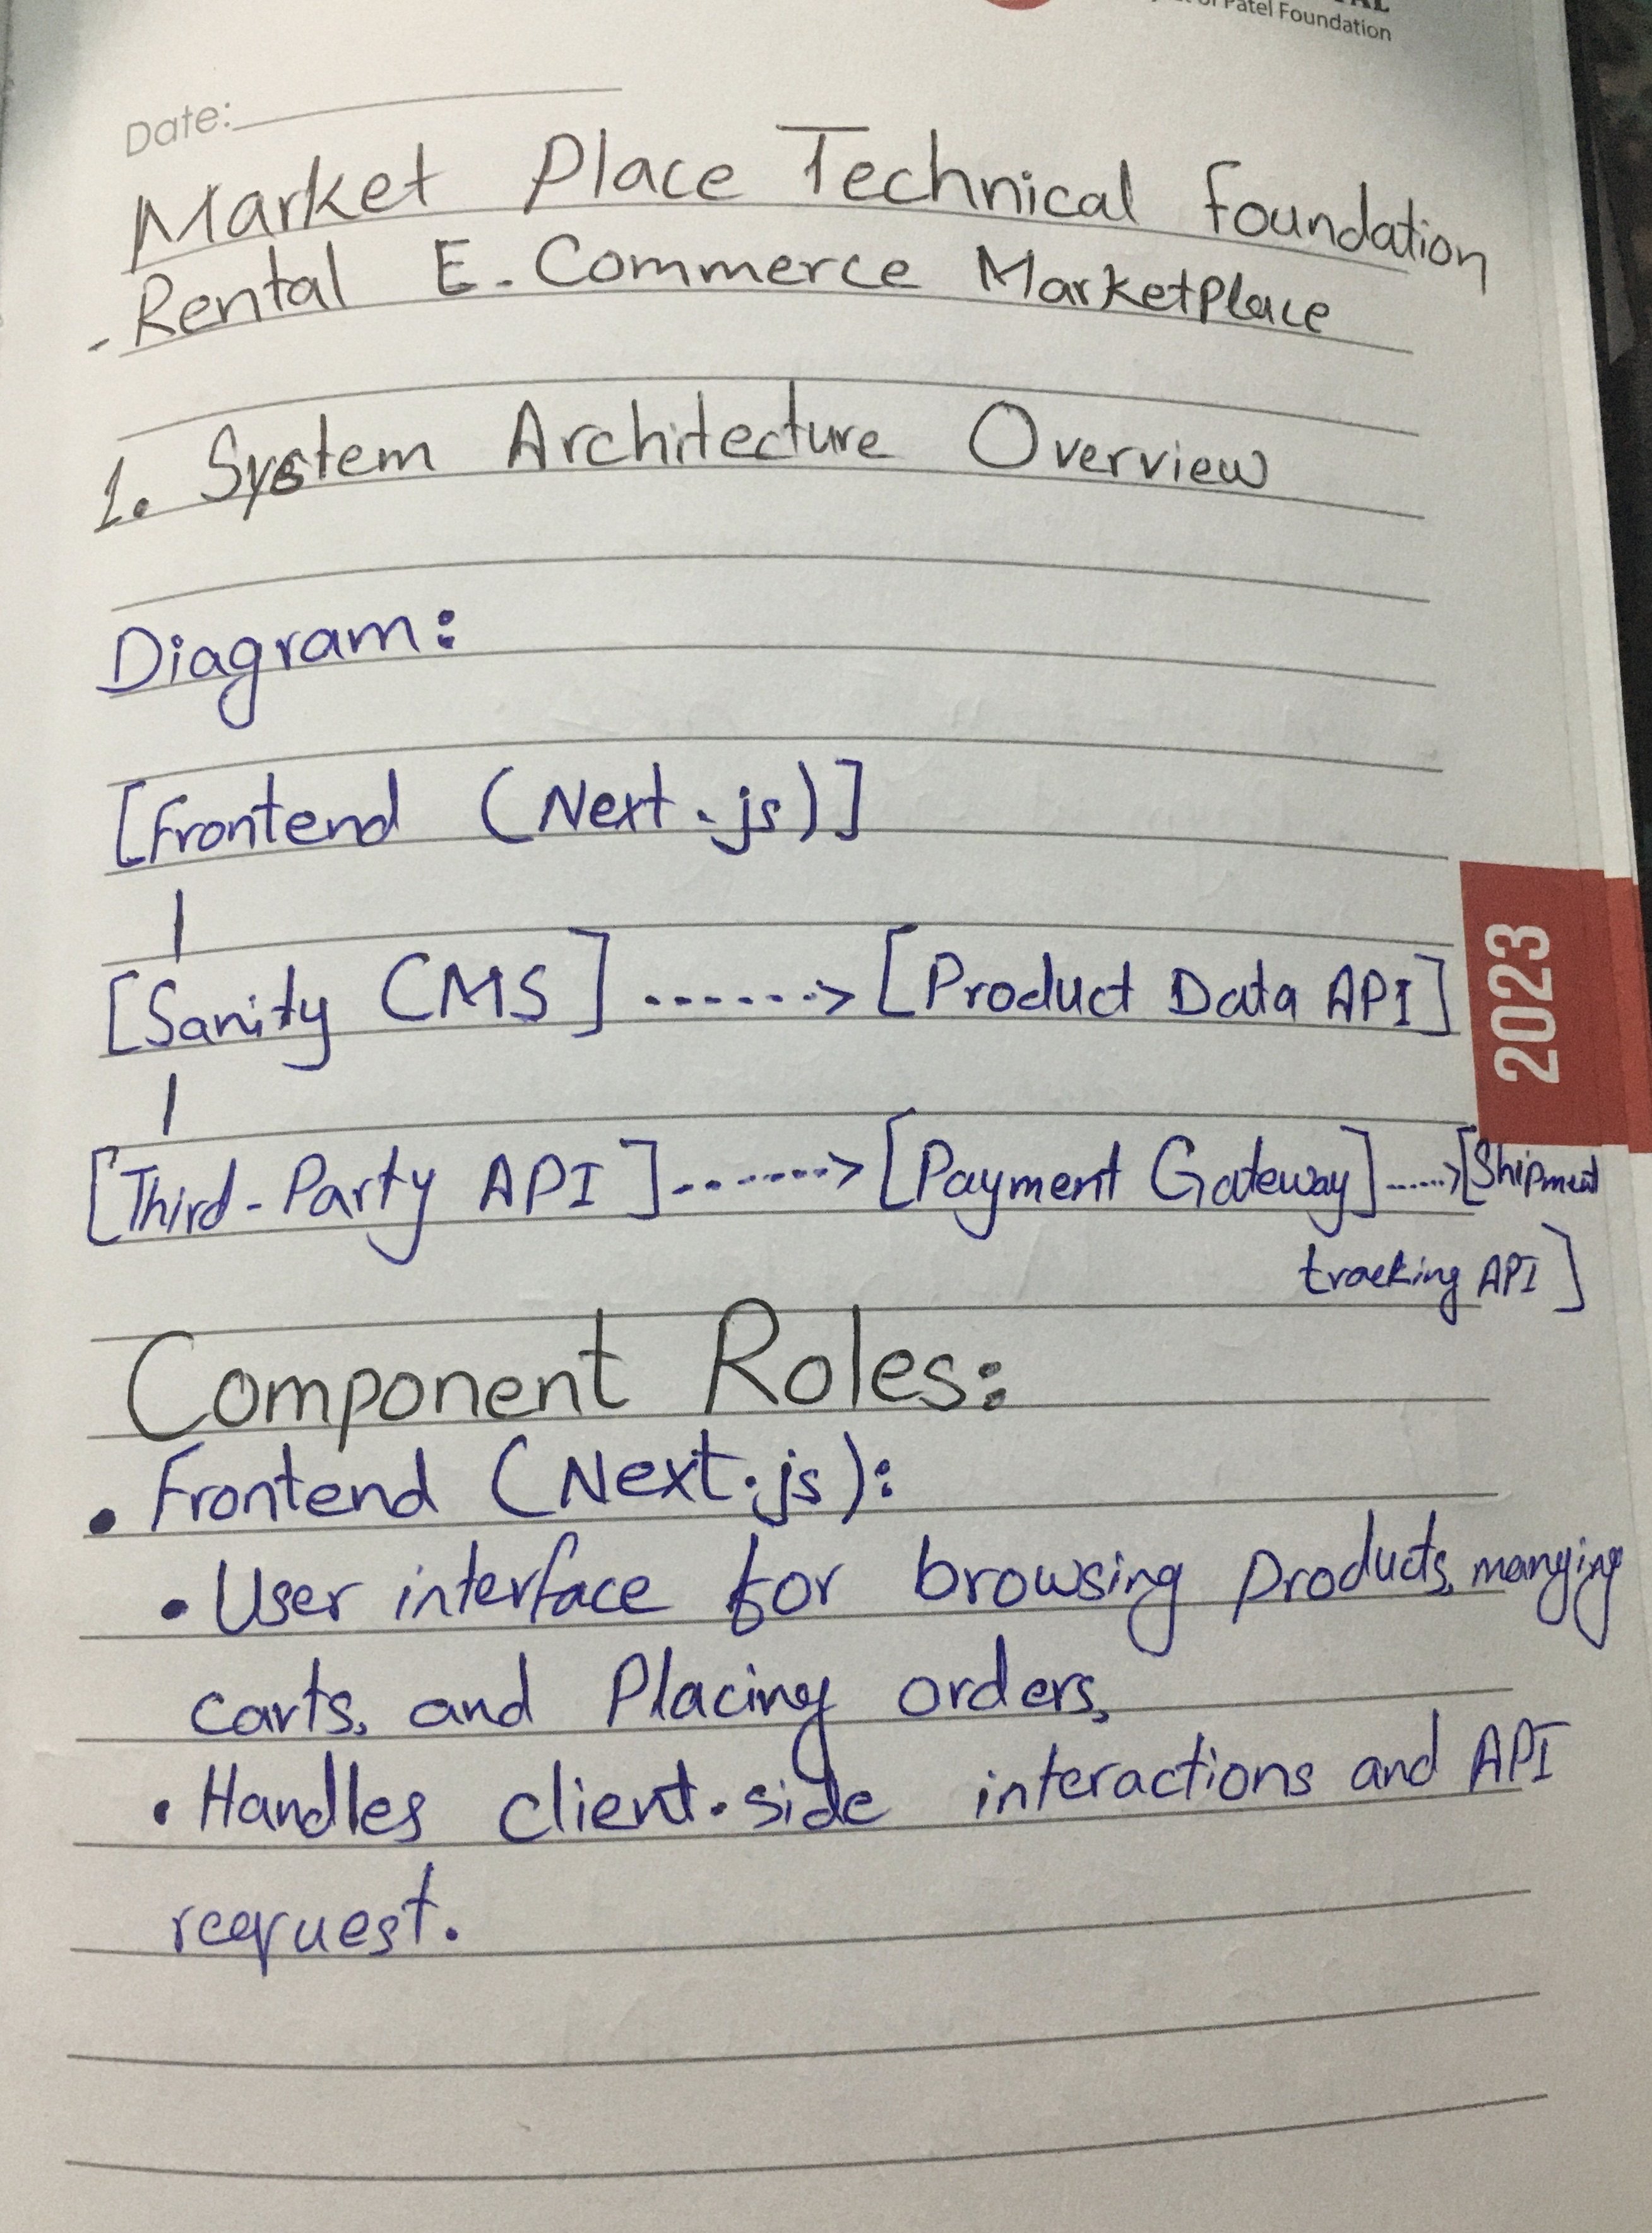 of Patel Foundation
Date:
Market Place Technical Foundation
- Rental E-Commerce MarketPlace
1. System Architecture Overview
Diagram:
[Frontend (Next.js)]
|
[Sanity CMS] -------> [Product Data API]
2023
|
[Third-Party API] -------> [Payment Gateway] ------> [Shipment
tracking API]
Component Roles:
• Frontend (Next.js):
• User interface for browsing Products, manging
carts, and Placing orders,
• Handles client-side interactions and API
request.